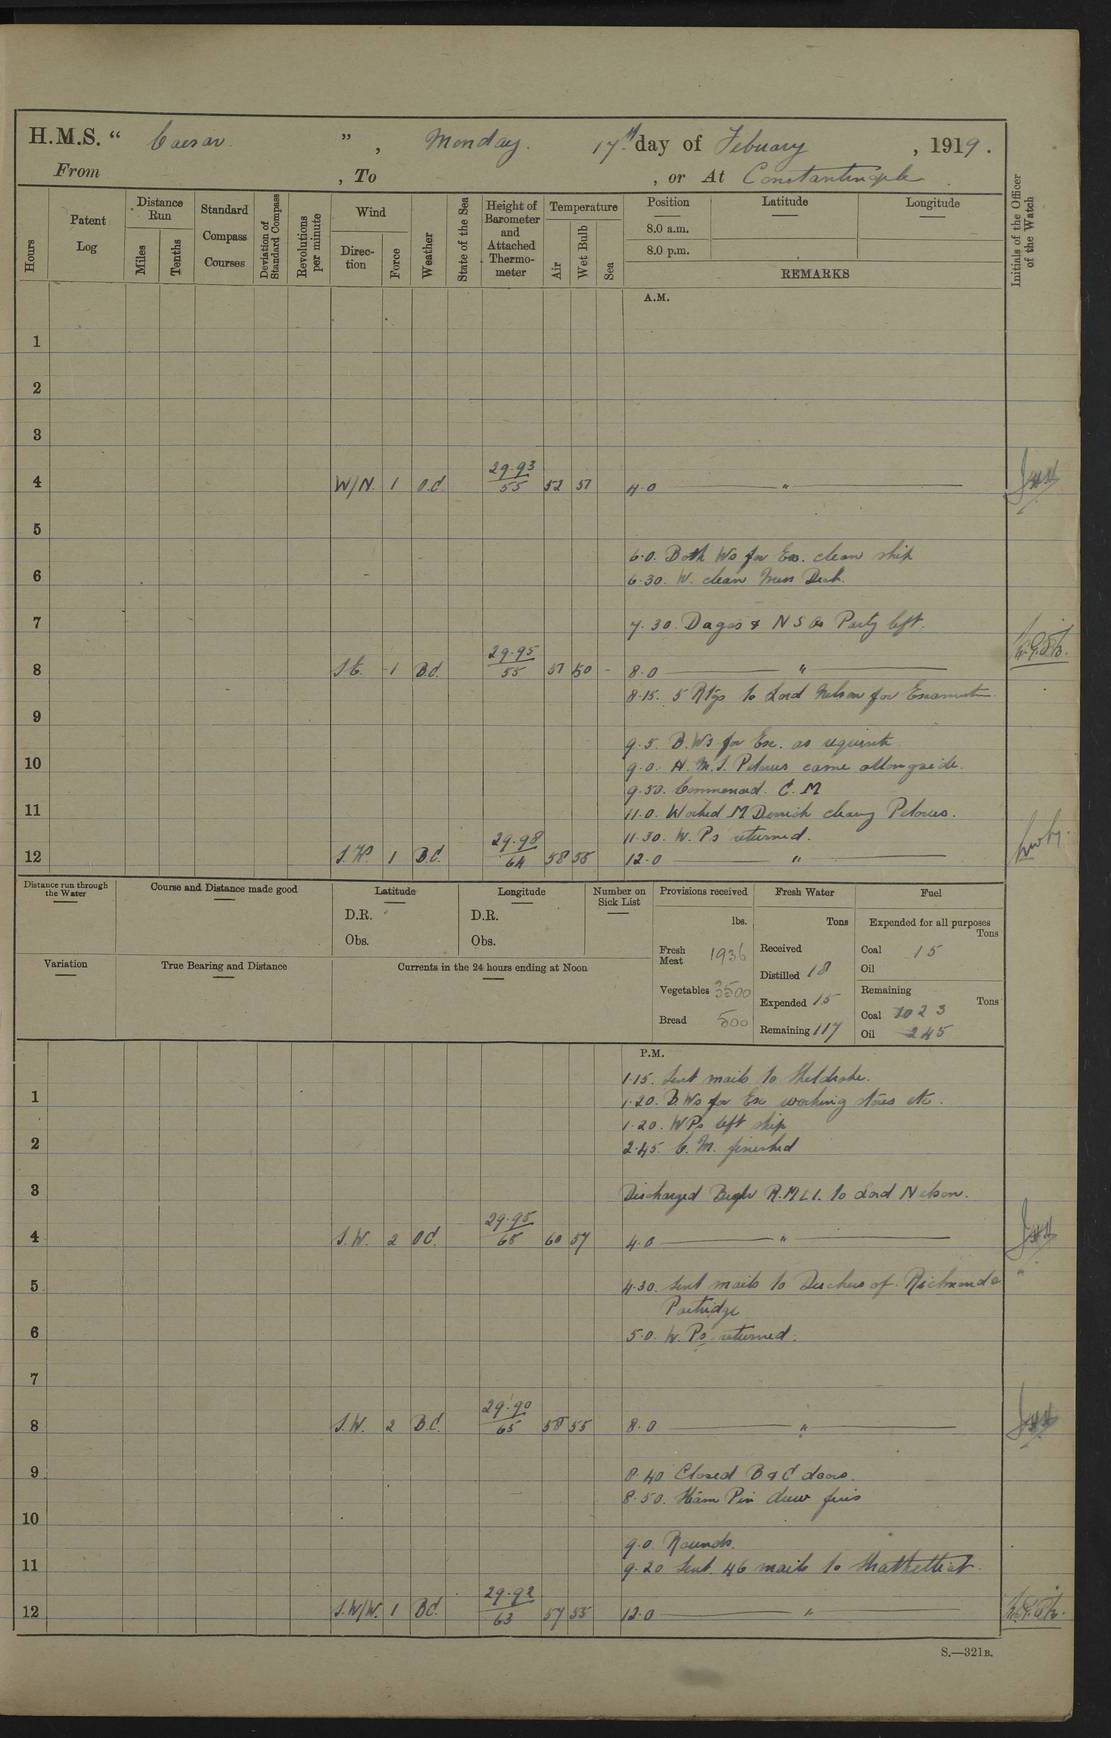 H.M.S. " Caesar " , Monday 17th day of Febuary , 1919.
From , To , or At Constantinople
Hours
Patent Log
Distance Run
Miles
Tenths
Standard Compass Courses
Deviation of Standard Compass
Revolutions per minute
Wind
Direction
Force
Weather
State of the Sea
Height of Barometer and Attached Thermometer
Temperature
Air
Wet Bulb
Sea
Position
8.0 a.m.
8.0 p.m.
Latitude
Longitude
REMARKS
Initials of the Officer of the Watch
A.M.
1
2
3
4 W/N. 1 O.C. 29.93 55 52 51 4.0 "
5
6.0. Both Ws for Ex. clean ship
6
6.30. W. clean Mess Deck.
7
7.30. Dagos & N S Os Party left.
8 S.E. 1 B.C. 29.95 55 51 50 - 8.0 "
8.15. 5 Rtgs to Lord Nelson for Examint
9
9.5. B.Ws for Ex. as requisite
10
9.0. H.M.S. came allongside.
9.50. Commenced C.M
11
11.0. Worked M Derrick
11.30. W. Ps returned.
12 S.W. 1 B.C. 29.98 64 58 55 12.0 "
Distance run through the Water
Course and Distance made good
Latitude
D.R.
Obs.
Longitude
D.R.
Obs.
Number on Sick List
Provisions received
lbs.
Fresh Meat 1936
Vegetables 3500
Bread 500
Fresh Water
Tons
Received
Distilled 18
Expended 15
Remaining 117
Fuel
Expended for all purposes
Tons
Coal 15
Oil
Remaining
Tons
Coal 1023
Oil 245
Variation
True Bearing and Distance
Currents in the 24 hours ending at Noon
P.M.
1.15. Sent mails to Sheldrake.
1
1.20. B.Ws for Ex working stores etc.
1.20. WPs left ship
2
2.45. C.M. finished
3
Discharged Bugler R.M.L.I. to Lord Nelson.
4 S.W. 2 OC. 29.95 65 60 57 4.0 "
5
4.30. Sent mails to Duchess of Richmond &
Partridge
6
5.0. W.Ps returned.
7
8 S.W. 2 B.C. 29.90 65 58 55 8.0 "
9
8.40 Closed B & C doors.
8.50. Steam Pin drew fires
10
9.0 Rounds.
11
9.20 Sent 46 mails to
12 S.W/W. 1 BC. 29.92 63 57 55 12.0 "
S.—321B.